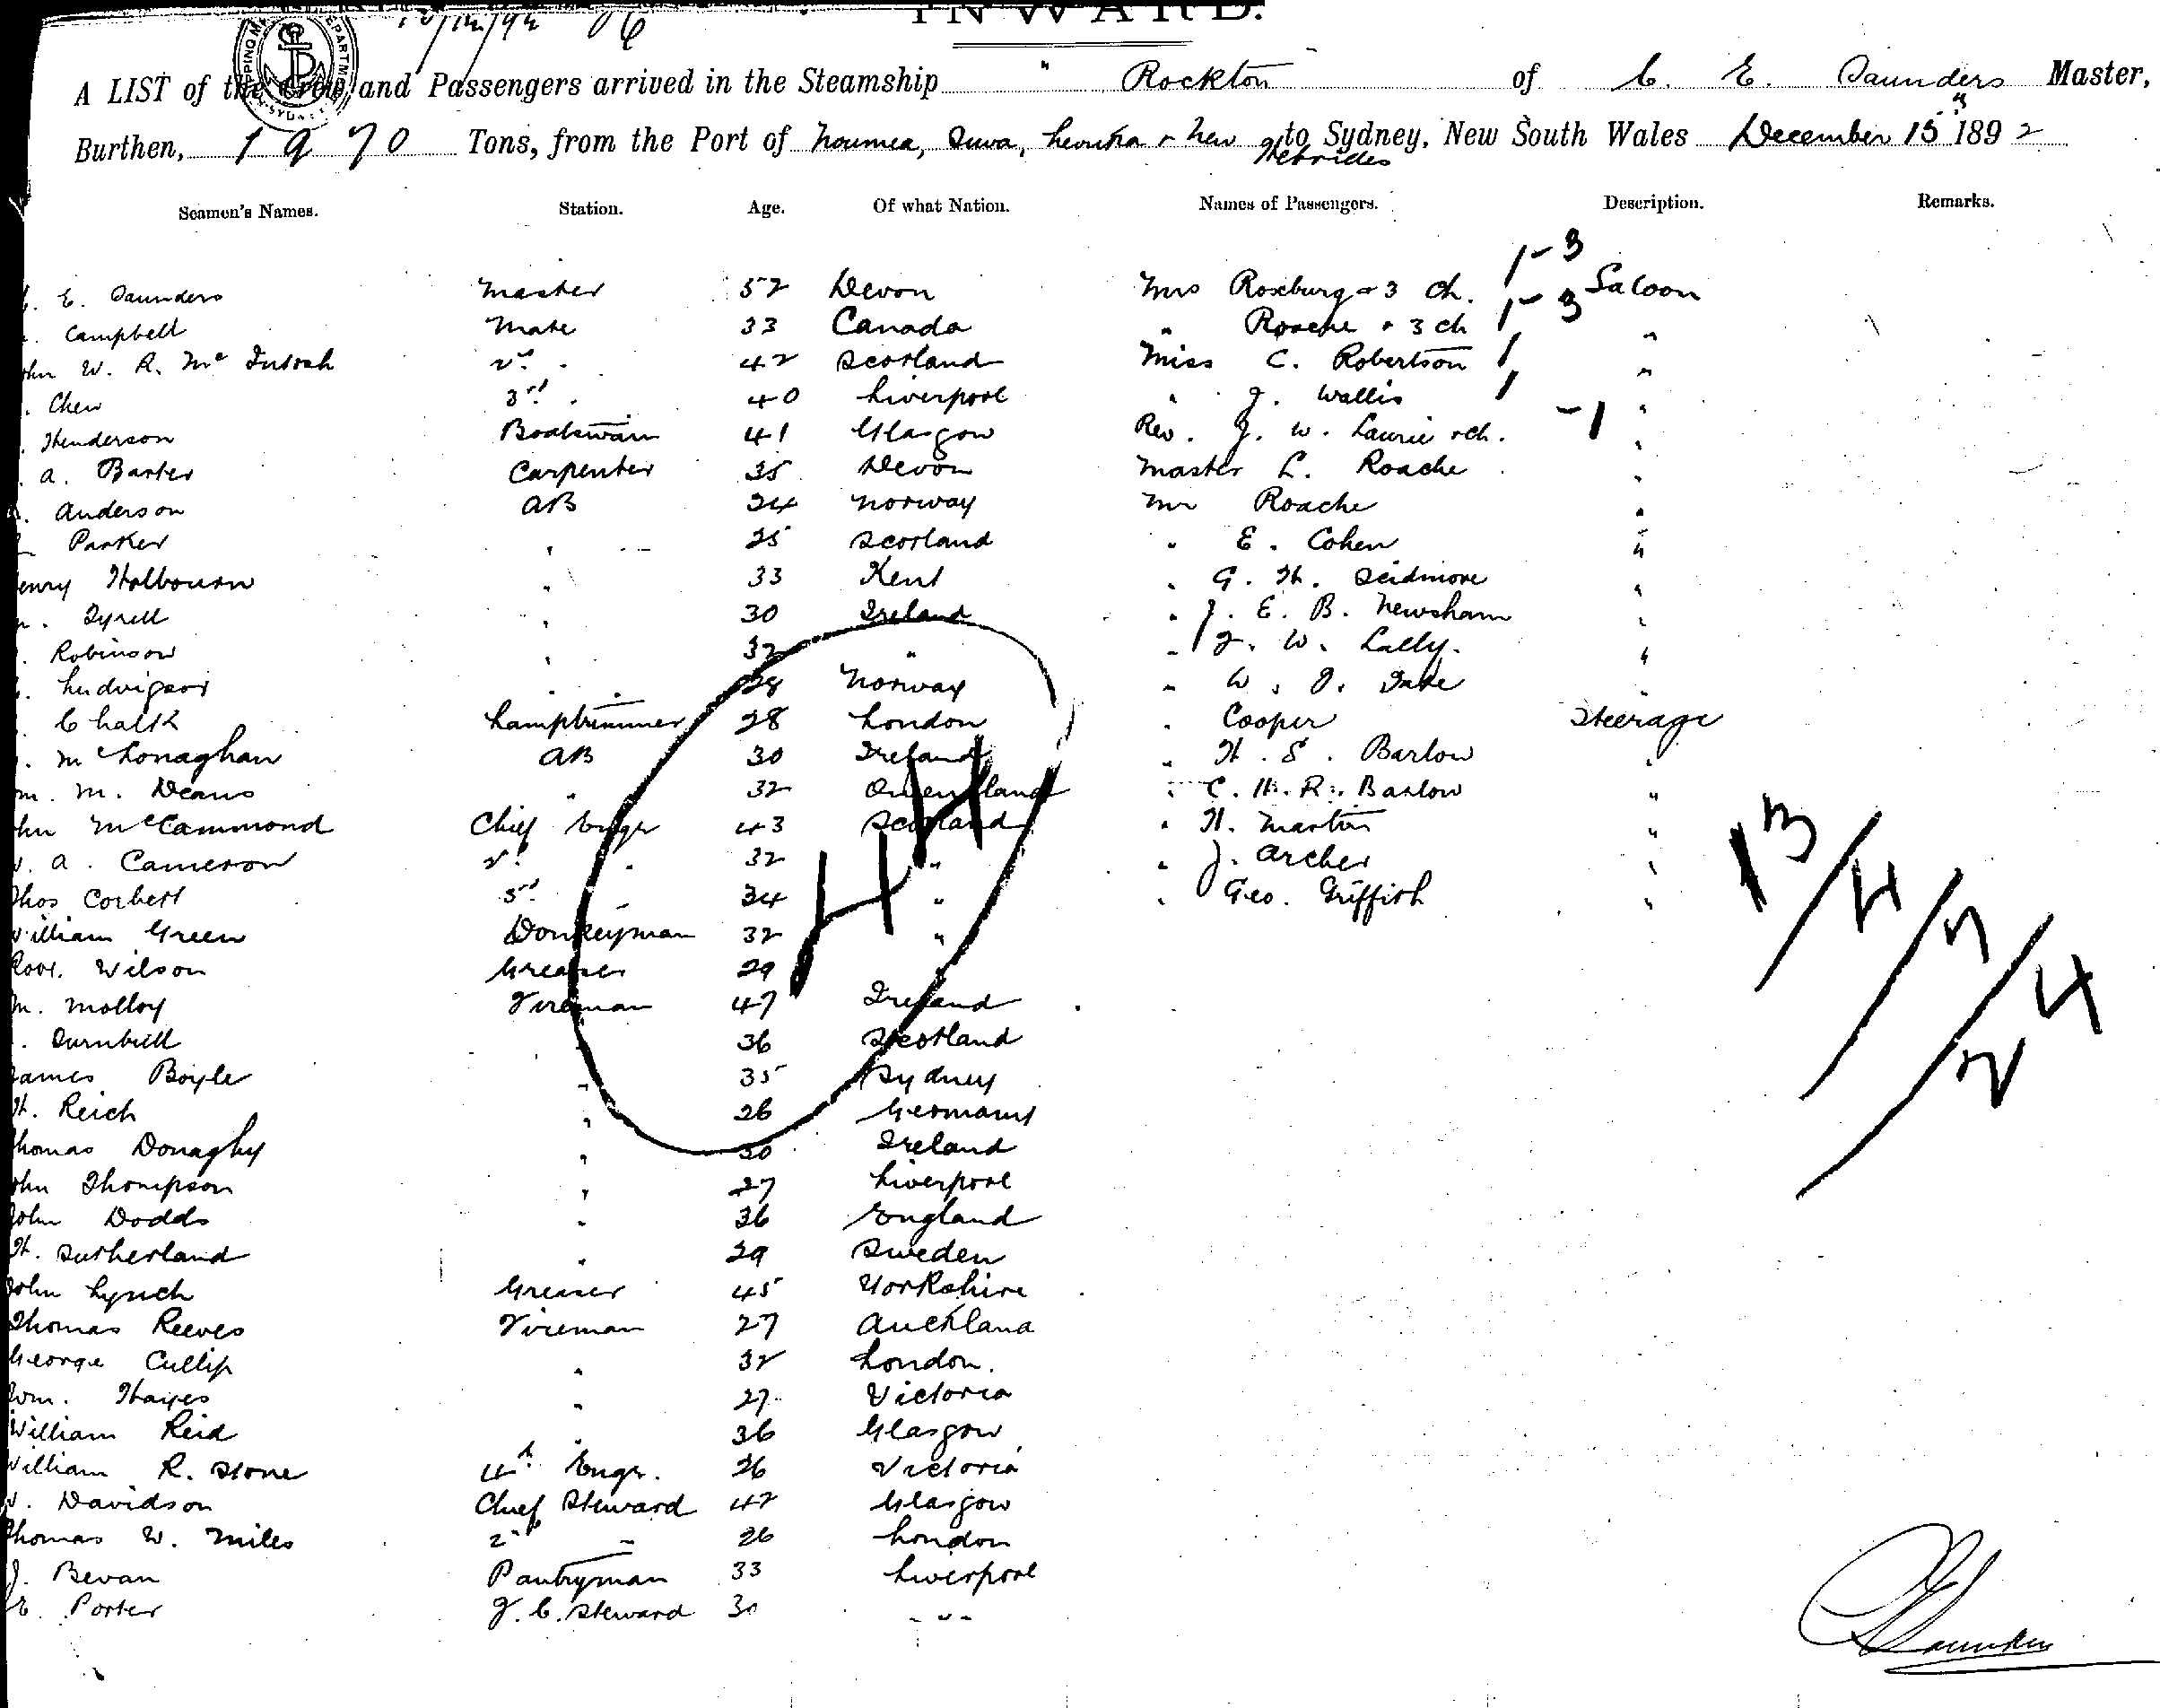 INWARD.
A LIST of the Crew and Passengers arrived in the Steamship " Rockton of C. E. Saunders Master,
Burthen, 1970 Tons, from the Port of Noumea, Suva, Levuka & New Hebrides to Sydney, New South Wales December 15th 1892
Seamen's Names. Station. Age. Of what Nation. Names of Passengers. Description. Remarks.
E. Saunders Master 52 Devon Mrs Roxburg & 3 ch. 1-3 Saloon
Campbell Mate 33 Canada " Roache & 3 ch 1-3 "
John W. R. McIntosh 2nd " 42 Scotland Miss C. Robertson 1 "
Chew 3rd " 40 Liverpool " J. Wallis 1 "
Henderson Boatswain 41 Glasgow Rev. J. W. Laurie & ch. -1 "
A. Barter Carpenter 35 Devon Master L. Roache "
Anderson AB 24 Norway Mr Roache "
Parker " 25 Scotland " E. Cohen "
Henry Holbourn " 33 Kent " G. H. Scidmore "
Tyrell " 30 Ireland " J. E. B. Newsham "
Robinson " 32 " " J. W. Lally. "
Ludvigsen " 28 Norway " W. J. "
Chalk Lamptrimmer 28 London " Cooper Steerage
McLonaghan AB 30 Ireland " H. S. Barlow "
Wm. M. Deans " 32 Queensland " C. H. R. Barlow "
John McCammond Chief Engr 43 Scotland " H. Martin "
A. Cameron 2nd " 32 " " J. Archer "
Thos Corbett 3rd " 34 " " Geo. Griffith "
William Green Donkeyman 32 "
Robt. Wilson Greaser 29 "
M. Molloy Fireman 47 Ireland
Turnbull " 36 Scotland
James Boyle " 35 Sydney
H. Reich " 26 Germany
Thomas Donaghy " 30 Ireland
John Thompson " 27 Liverpool
John Dodds " 36 England
H. Sutherland " 29 Sweden
John Lynch Greaser 45 Yorkshire
Thomas Reeves Fireman 27 Auckland
George Cullip " 32 London.
Wm. Hayes " 27 Victoria
William Reid " 36 Glasgow
William R. Stone 4th Engr. 26 Victoria
Davidson Chief Steward 42 Glasgow
Thomas W. Miles 2nd " 26 London
J. Bevan Pantryman 33 Liverpool
E. Porter F. C. Steward 30 "
13/4/7/24
44
CESaunders